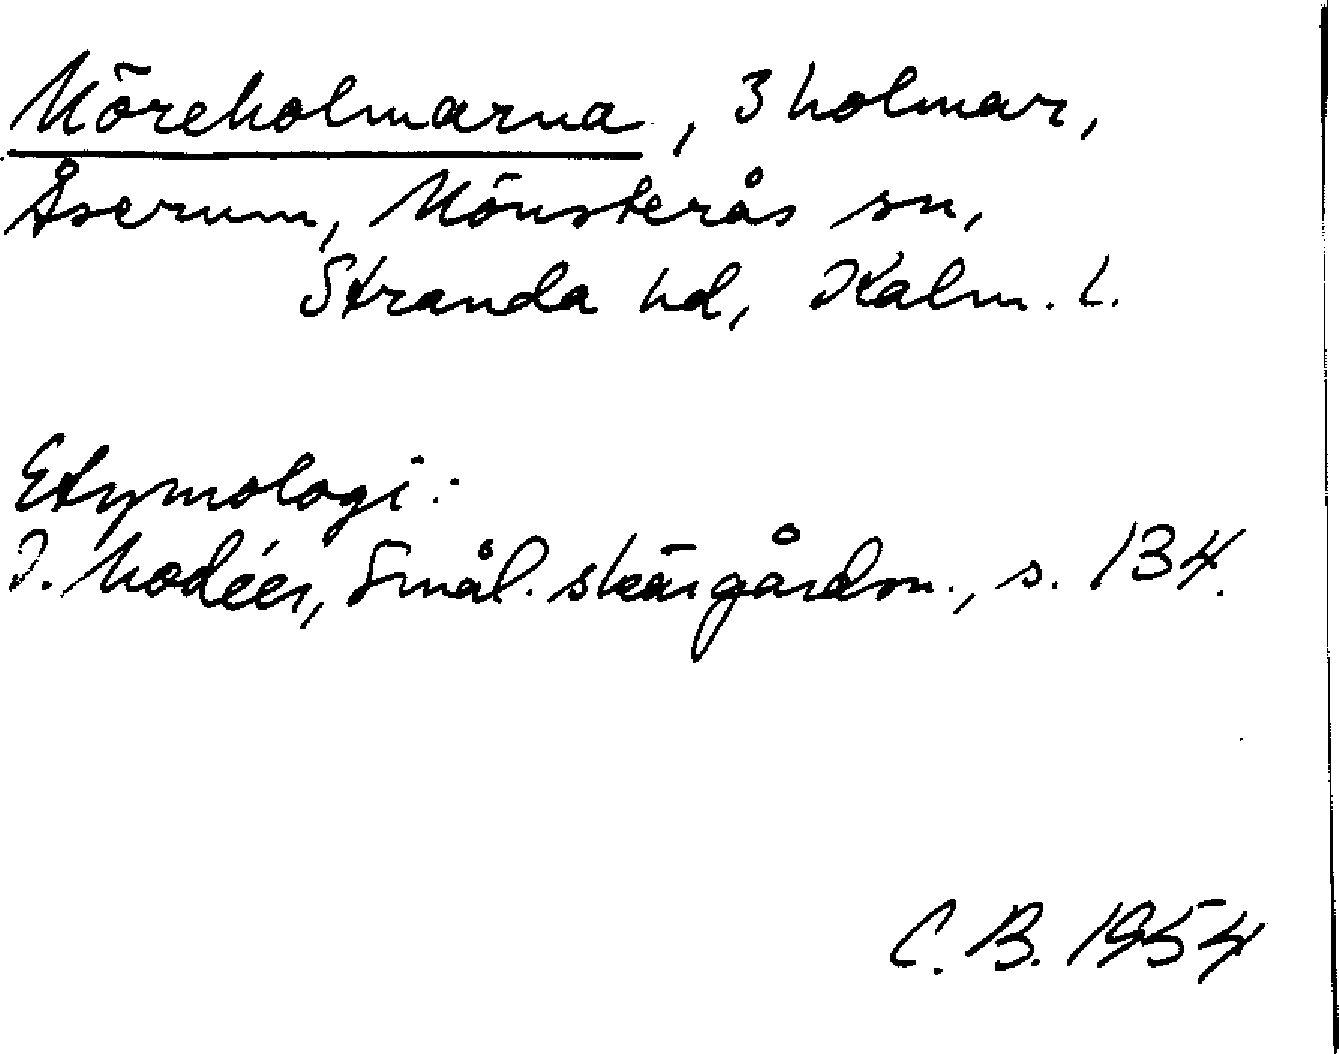 Möreholmarna, 3 holmar,
Åserum, Mönsterås sn,
Stranda hd, Kalm. l.
Etymologi:
I. Modéer, Smål. skärgårdsn., s. 134.
C. B. 1954